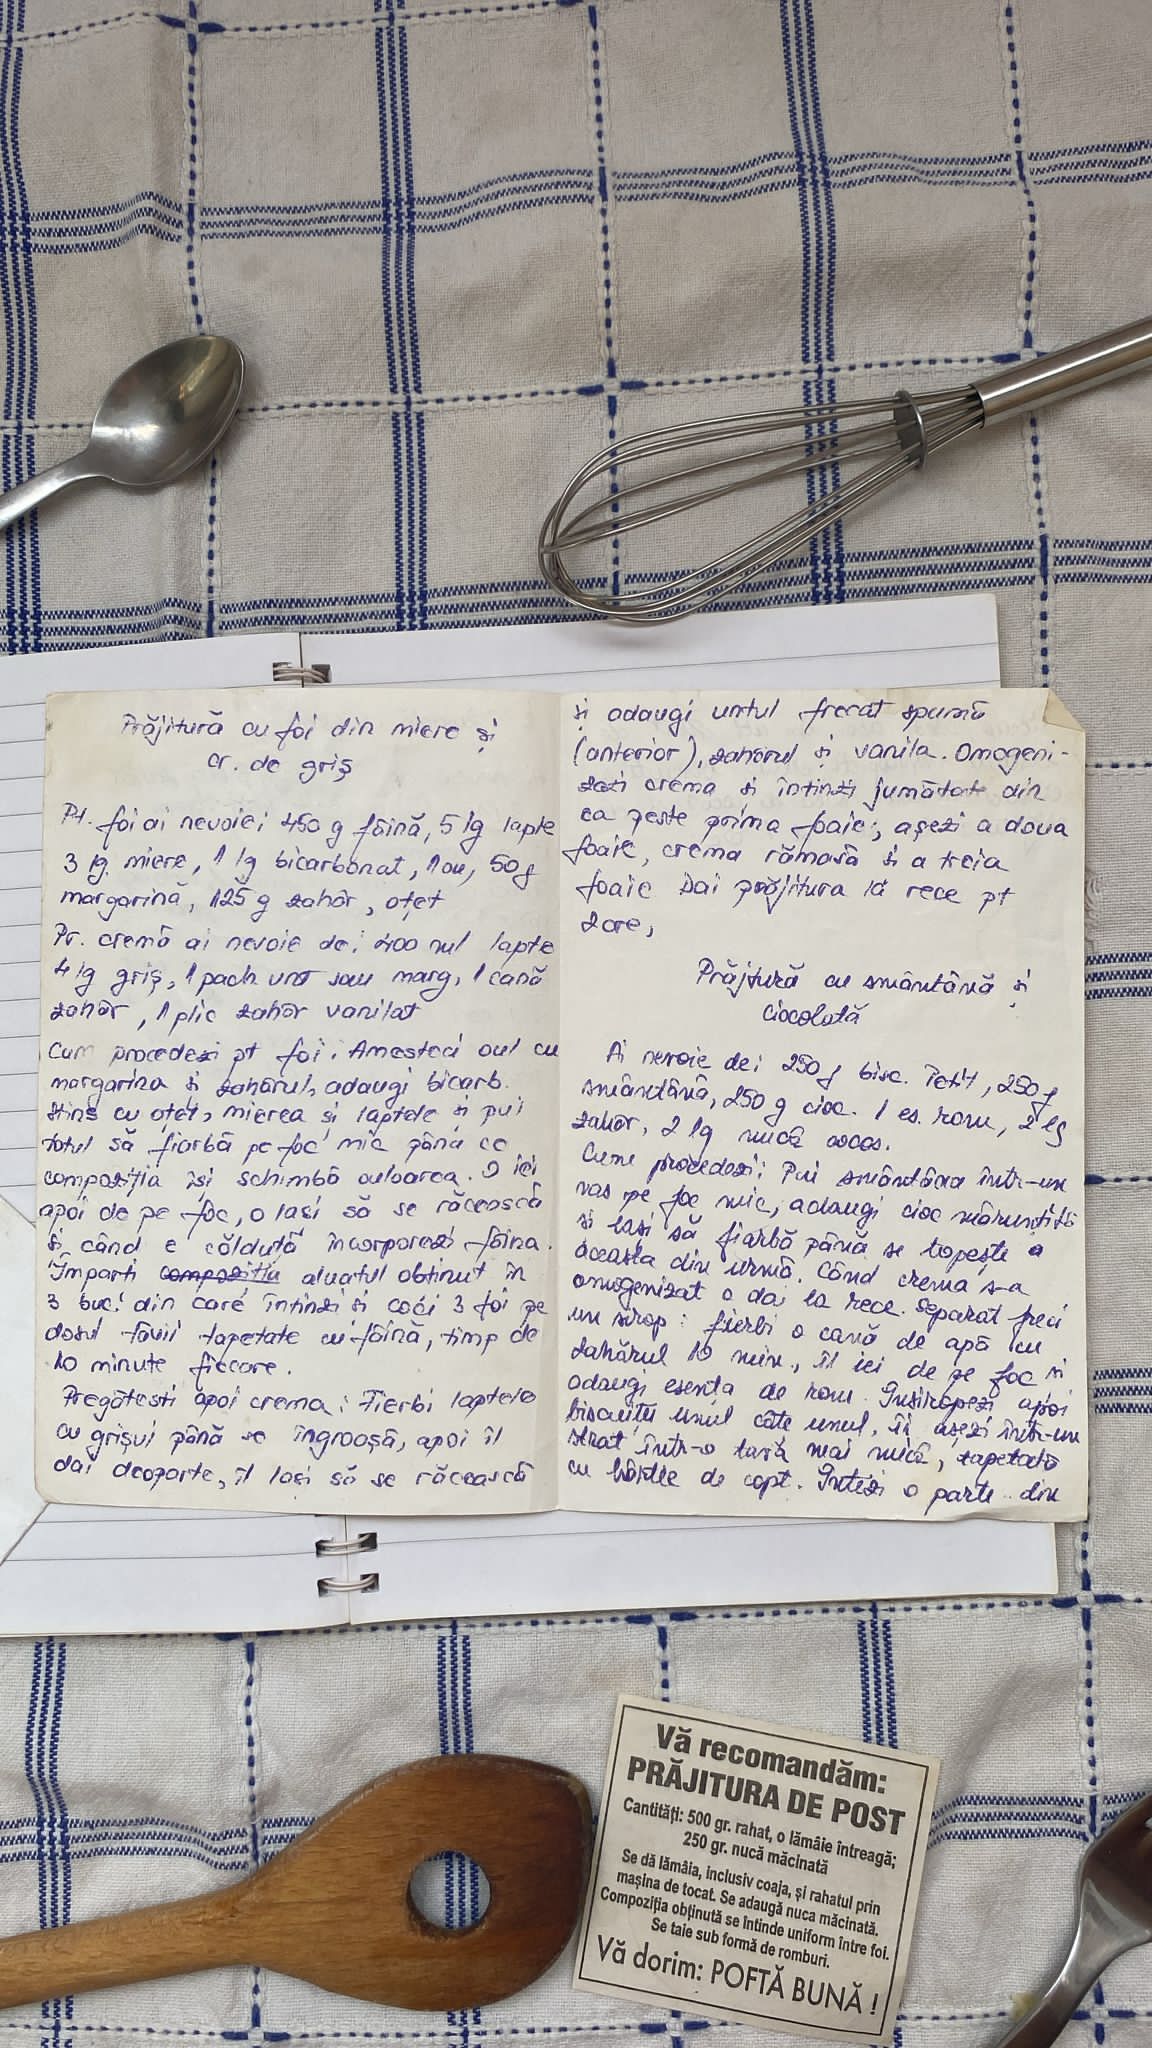 Prăjitură cu foi din miere și
cr. de griș
Pt. foi ai nevoie: 450 g făină, 5 lg lapte
3 lg. miere, 1 lg bicarbonat, 1 ou, 50g
margarină, 125 g zahăr, oțet
Pt. cremă ai nevoie de: 400 ml lapte
4 lg griș, 1 pach unt sau marg, 1 cană
zahăr, 1 plic zahăr vanilat
Cum procedezi pt foi: Amesteci oul cu
margarina și zahărul, adaugi bicarb.
stins cu oțet, mierea și laptele și pui
totul să fiarbă pe foc mic până ce
compoziția își schimbă culoarea. O iei
apoi de pe foc, o lași să se răcească
și când e călduță încorporezi făina.
Împarți compoziția aluatul obținut în
3 buci din care întinzi și coci 3 foi pe
dosul tăvii tapetate cu făină, timp de
10 minute fiecare.
Pregătești apoi crema: Fierbi laptele
cu grișul până se îngroașă, apoi îl
dai deoparte, îl lași să se răcească
și adaugi untul frecat spumă
(anterior), zahărul și vanilia. Omogeni-
zezi crema și întinzi jumătate din
ea peste prima foaie; așezi a doua
foaie, crema rămasă și a treia
foaie Dai prăjitura la rece pt
2 ore,
Prăjitură cu smântână și
ciocolată
Ai nevoie de: 250g bisc. Petit, 250g
smântână, 250 g cioc. 1 es. rom, 2 lg
zahăr, 2 lg nucă cocos.
Cum procedezi: Pui smântâna într-un
vas pe foc mic, adaugi cioc mărunțită
și lași să fiarbă până se topește
aceasta din urmă. Când crema s-a
omogenizat o dai la rece. Separat faci
un sirop: fierbi o cană de apă cu
zahărul 10 min., îl iei de pe foc și
adaugi esența de rom. Însiropezi apoi
biscuiții unul câte unul, îi așezi într-un
strat într-o tavă mai mică, tapetată
cu hârtie de copt. Întizi o parte din
Vă recomandăm:
PRĂJITURA DE POST
Cantități: 500 gr. rahat, o lămâie întreagă;
250 gr. nucă măcinată
Se dă lămâia, inclusiv coaja, și rahatul prin
mașina de tocat. Se adaugă nuca măcinată.
Compoziția obținută se întinde uniform între foi.
Se taie sub formă de romburi.
Vă dorim: POFTĂ BUNĂ !